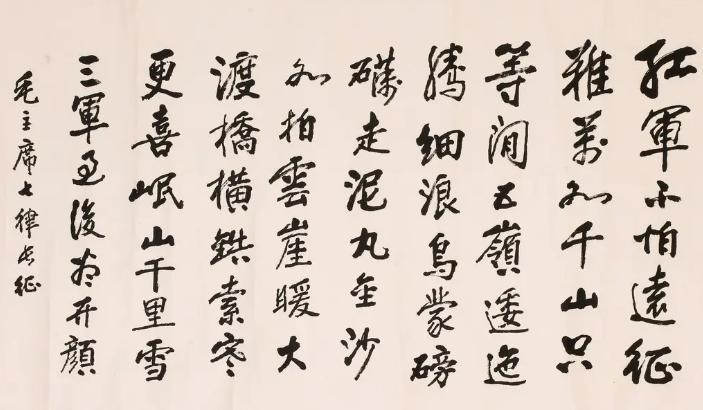 紅軍不怕遠征
難萬水千山只
等閒五嶺逶迤
騰細浪烏蒙磅
礴走泥丸金沙
水拍雲崖暖大
渡橋橫鐵索寒
更喜岷山千里雪
三軍過後盡开顏
毛主席七律長征